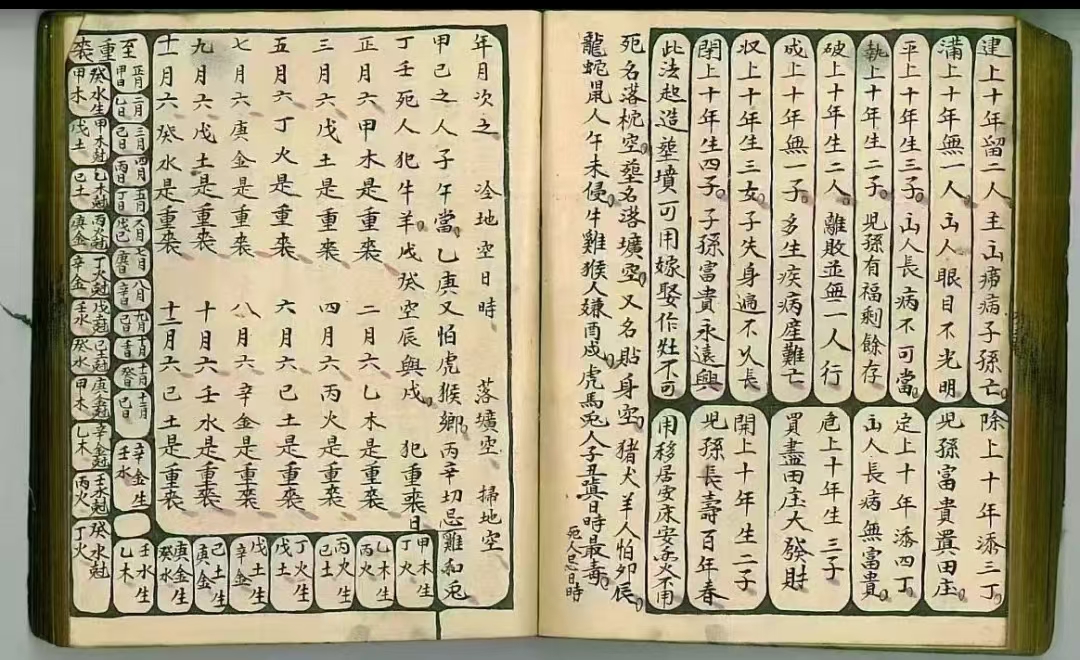 建上十年留二人主山痨病子孫亡
除上十年添三丁
滿上十年無一人山人眼目不光明
兒孫富貴置田庄
平上十年生三子山人長病不可當
定上十年添四丁
執上十年生二子兒孫有福剩餘存
山人長病無富貴
破上十年生二人離敗並無一人行
危上十年生三子
成上十年無一子多生疾病產難亡
買盡田庄大發財
収上十年生三女子失身過不久長
開上十年生二子
閉上十年生四子子孫富貴永遠興
兒孫長壽百年春
此法起造塟墳可用嫁娶作灶不可
用移居安床安灵不用
死名落枕空塟名落壙空又名貼身空猪犬羊人怕卯辰
龍蛇鼠人午未侵牛雞猴人嫌酉戍虎馬兎人子丑真日時最毒
死人忌日時
年月次之 冷地空日時 落壙空 掃地空
甲己之人子午當乙庚又怕虎猴鄉丙辛切忌雞和兎
丁壬死人犯牛羊戊癸空辰與戍 犯重喪日
正月六甲木是重喪 二月六乙木是重喪
三月六戊土是重喪 四月六丙火是重喪
五月六丁火是重喪 六月六己土是重喪
七月六庚金是重喪 八月六辛金是重喪
九月六戊土是重喪 十月六壬水是重喪
十一月六癸水是重喪 十二月六己土是重喪
甲木生丁火
乙木生丙火
丙火生己土
丁火生戊土
戊土生辛金
己土生庚金
庚金生癸水
壬水生乙木
辛金生壬水
至重喪
正月甲日
二月乙日
三月己日
四月丙日
五月丁日
八月辛日
十二月己日
癸水生甲木
甲木尅戊土
乙木尅己土
丙火尅庚金
丁火尅辛金
戊土尅壬水
己土尅癸水
庚金尅甲木
辛金尅乙木
壬水尅丙火
癸水尅丁火